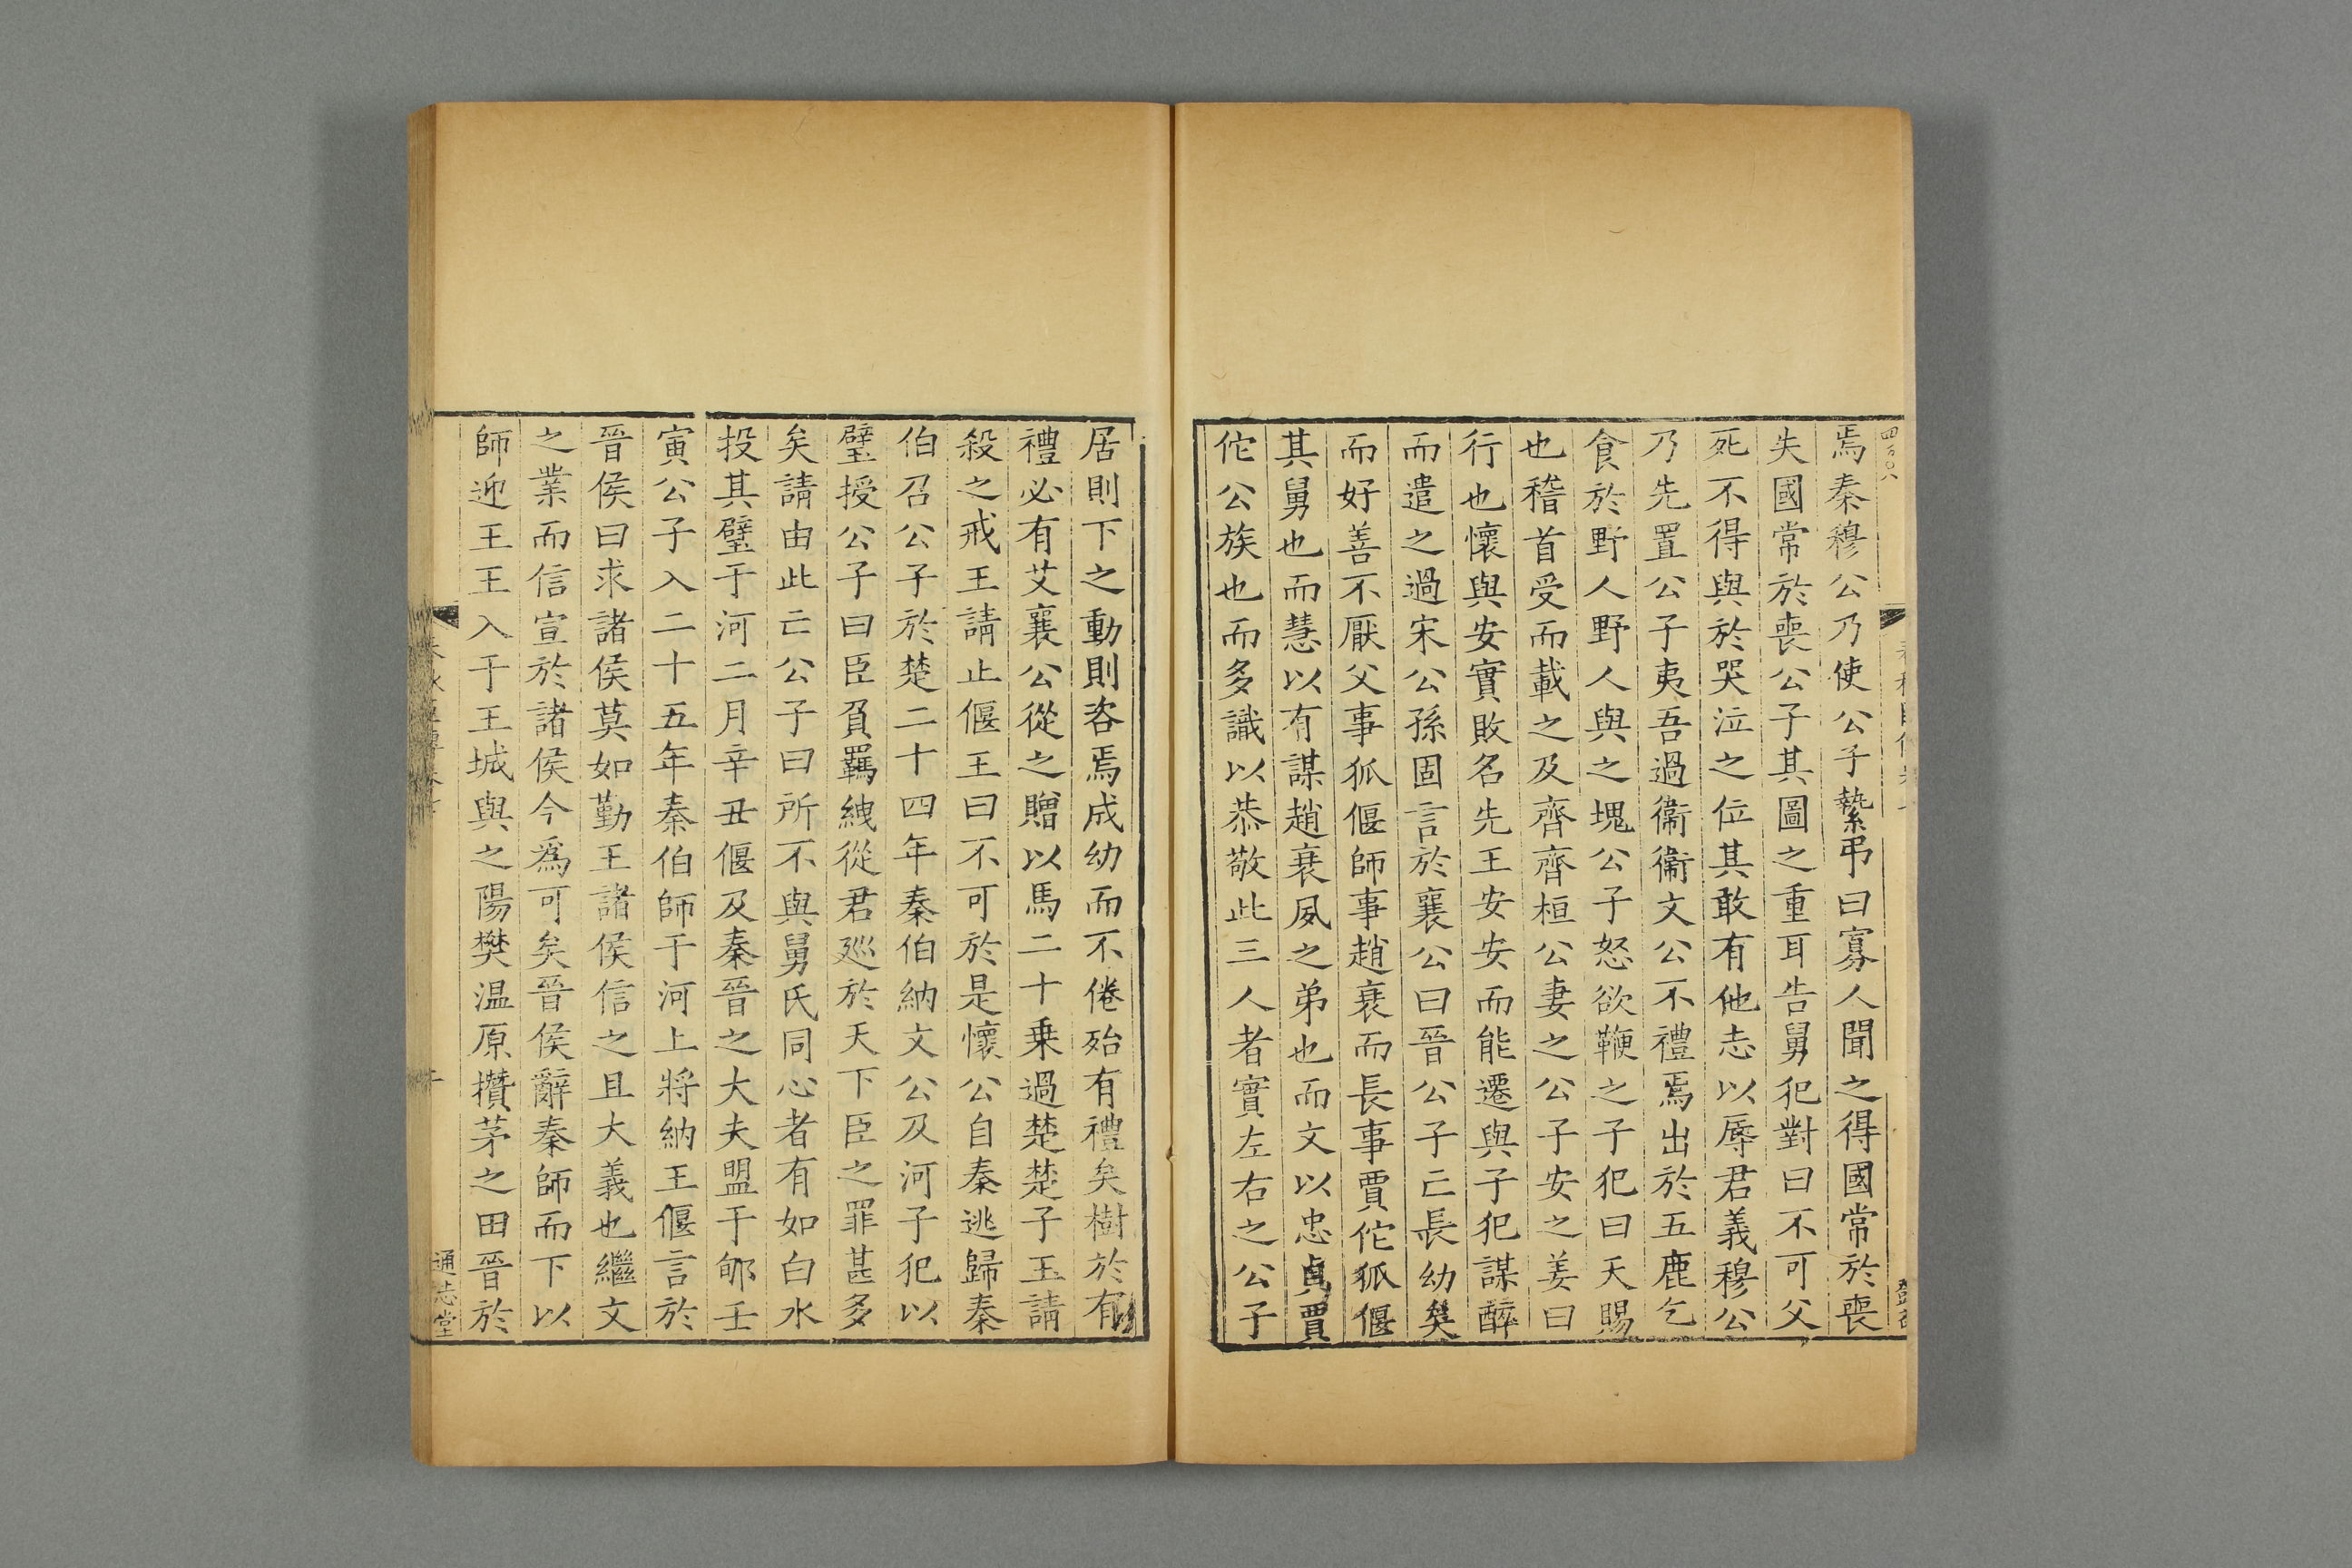 焉秦穆公乃使公子縶弔曰寡人聞之得國常於喪
失國常於喪公子其圖之重耳告舅犯對曰不可父
死不得與於哭泣之位其敢有他志以辱君義穆公
乃先置公子夷吾過衞衞文公不禮焉出於五鹿乞
食於野人野人與之塊公子怒欲鞭之子犯曰天賜
也稽首受而載之及齊齊桓公妻之公子安之姜曰
行也懷與安實敗名先王安安而能遷與子犯謀醉
而遣之過宋公孫固言於襄公曰晉公子亡長幼矣
而好善不厭父事狐偃師事趙衰而長事賈佗狐偃
其舅也而慧以有謀趙衰夙之弟也而文以忠貞賈
佗公族也而多識以恭敬此三人者實左右之公子
居則下之動則咨焉成幼而不倦殆有禮矣樹於有
禮必有艾襄公從之贈以馬二十乗過楚楚子玉請
殺之戒王請止偃王曰不可於是懷公自秦逃歸秦
伯召公子於楚二十四年秦伯納文公及河子犯以
璧授公子曰臣負羈紲從君廵於天下臣之罪甚多
矣請由此亡公子曰所不與舅氏同心者有如白水
投其璧于河二月辛丑偃及秦晉之大夫盟于郇壬
寅公子入二十五年秦伯師于河上將納王偃言於
晉侯曰求諸侯莫如勤王諸侯信之且大義也繼文
之業而信宣於諸侯今爲可矣晉侯辭秦師而下以
師迎王王入于王城與之陽樊温原攢茅之田晉於
通志堂